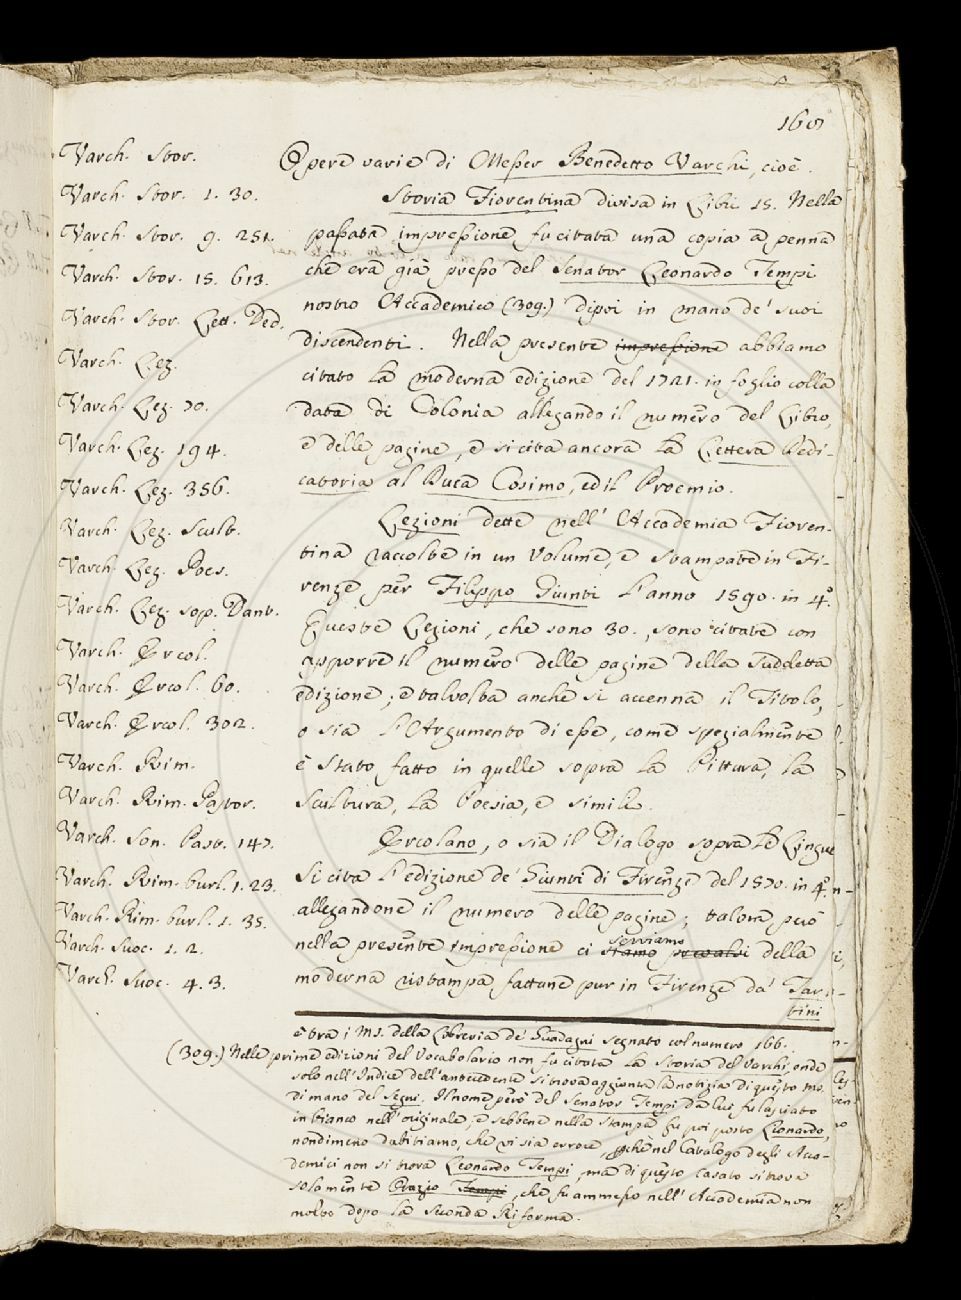 160
Varch. Stor.
Varch. Stor. 1. 30.
Varch. Stor. 9. 251.
Varch. Stor. 15. 613.
Varch. Stor. Lett. Ded.
Varch. Lez.
Varch. Lez. 70.
Varch. Lez. 194.
Varch. Lez. 356.
Varch. Lez. Scult.
Varch. Lez. Poes.
Varch. Lez. sop. Dant.
Varch. Ercol.
Varch. Ercol. 60.
Varch. Ercol. 302.
Varch. Rim.
Varch. Rim. Pastor.
Varch. Son. Past. 147.
Varch. Rim. burl. 1. 23.
Varch. Rim. burl. 1. 35.
Varch. Suoc. 1. 2.
Varch. Suoc. 4. 3.
Opere varie di Messer Benedetto Varchi, cioè.
Storia Fiorentina divisa in Libri 15. Nella
passata impressione fu citata una copia a penna
che era già presso del Senator Leonardo Tempi
nostro Accademico (309.) dipoi in mano de' suoi
discendenti. Nella presente impressione abbiamo
citato la moderna edizione del 1721. in foglio colla
data di Colonia allegando il numero del Libro,
e delle pagine, e si cita ancora la Lettera Dedi-
catoria al Duca Cosimo, ed il Proemio.
Lezioni dette nell' Accademia Fioren-
tina raccolte in un Volume, e stampate in Fi-
renze per Filippo Giunti l'anno 1590. in 4º.
Queste Lezioni, che sono 30., sono citate con
apporre il numero delle pagine della suddetta
edizione; e talvolta anche si accenna il Titolo,
o sia l'Argumento di esse, come spezialmente
è stato fatto in quelle sopra la Pittura, la
Scultura, la Poesia, e simili.
Ercolano, o sia il Dialogo sopra le Lingue
Si cita l'edizione de' Giunti di Firenze del 1570. in 4º
allegandone il numero delle pagine; talora però
nella presente impressione ci serviamo
stamo della
moderna ristampa fattane pur in Firenze da' Tar-
tini
è tra i MS. della Libreria de' Guadagni segnato col numero 166.
(309.) Nelle prime edizioni del Vocabolario non fu citata la Storia del Varchi, onde
solo nell'Indice dell'antecedente si trova aggiunta la notizia di questo ms.
di mano del Segni. Il nome però del Senator Tempi da lui fu lasciato
in bianco nell'originale, e sebbene nella stampa fu poi posto Leonardo,
nondimeno dubitiamo, che vi sia errore, perchè nel Catalogo degli Acca-
demici non si trova Leonardo Tempi, ma di questo casato si trova
solamente Orazio Tempi, che fu ammesso nell' Accademia non
molto dopo la seconda Riforma.